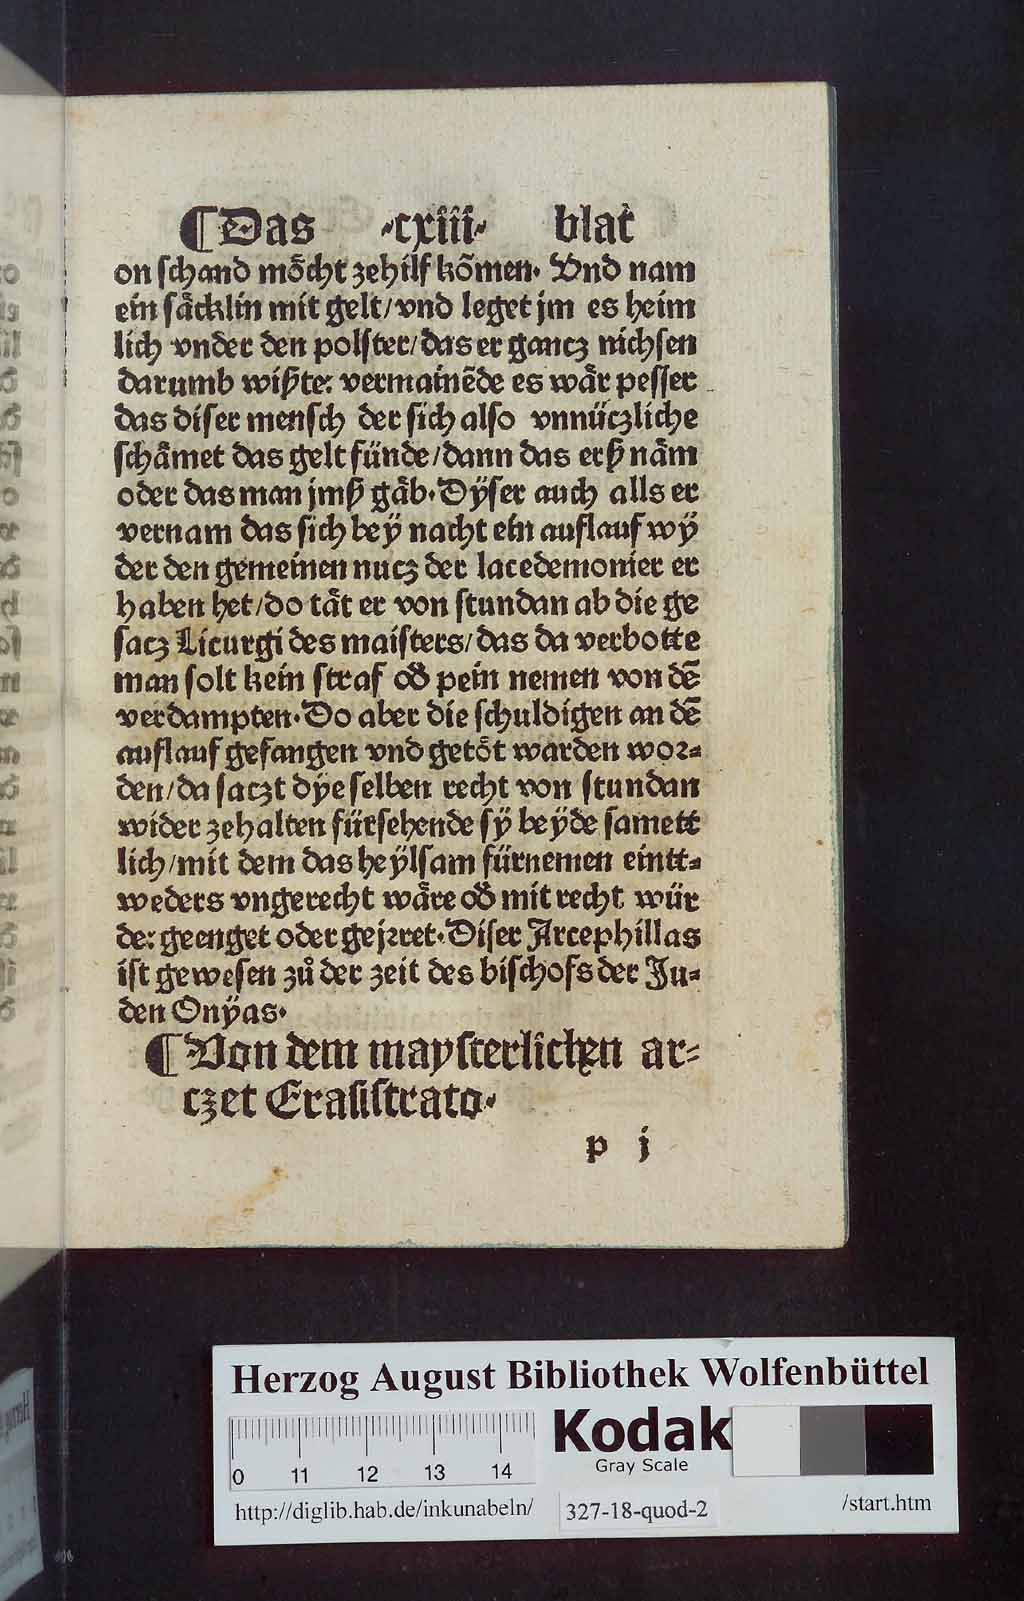 ¶Das ·cxiii· blat
on schand mo̊cht zehilf kõmen· Vnd nam
ein såcklin mit gelt/vnd leget jm es heim
lich vnder den polster/das er gancz nichsen
darumb wißte: vermainẽde es wår pesser
das diser mensch der sich also vnnüczliche
schåmet das gelt fünde/dann das erß nåm
oder das man jmß gåb· Dÿser auch alls er
vernam das sich beÿ nacht ein auflauf wÿ
der den gemeinen nucz der lacedemonier er
haben het/do tåt er von stundan ab die ge
sacz Licurgi des maisters/das da verbotte
man solt kein straf oð pein nemen von dẽ
verdampten· Do aber die schuldigen an dẽ
auflauf gefangen vnd geto̊t warden wor⸗
den/da saczt dÿe selben recht von stundan
wider zehalten fürsehende sÿ beÿde samett
lich/mit dem das heÿlsam fürnemen eintt⸗
weders vngerecht wåre oð mit recht wür
de: geenget oder gejrret· Diser Arcephillas
ist gewesen zů der zeit des bischofs der Ju⸗
den Onÿas·
¶Von dem maysterlichen ar⸗
czet Erasistrato·
p j
Herzog August Bibliothek Wolfenbüttel
Kodak
Gray Scale
0 11 12 13 14
http://diglib.hab.de/inkunabeln/ 327-18-quod-2 /start.htm